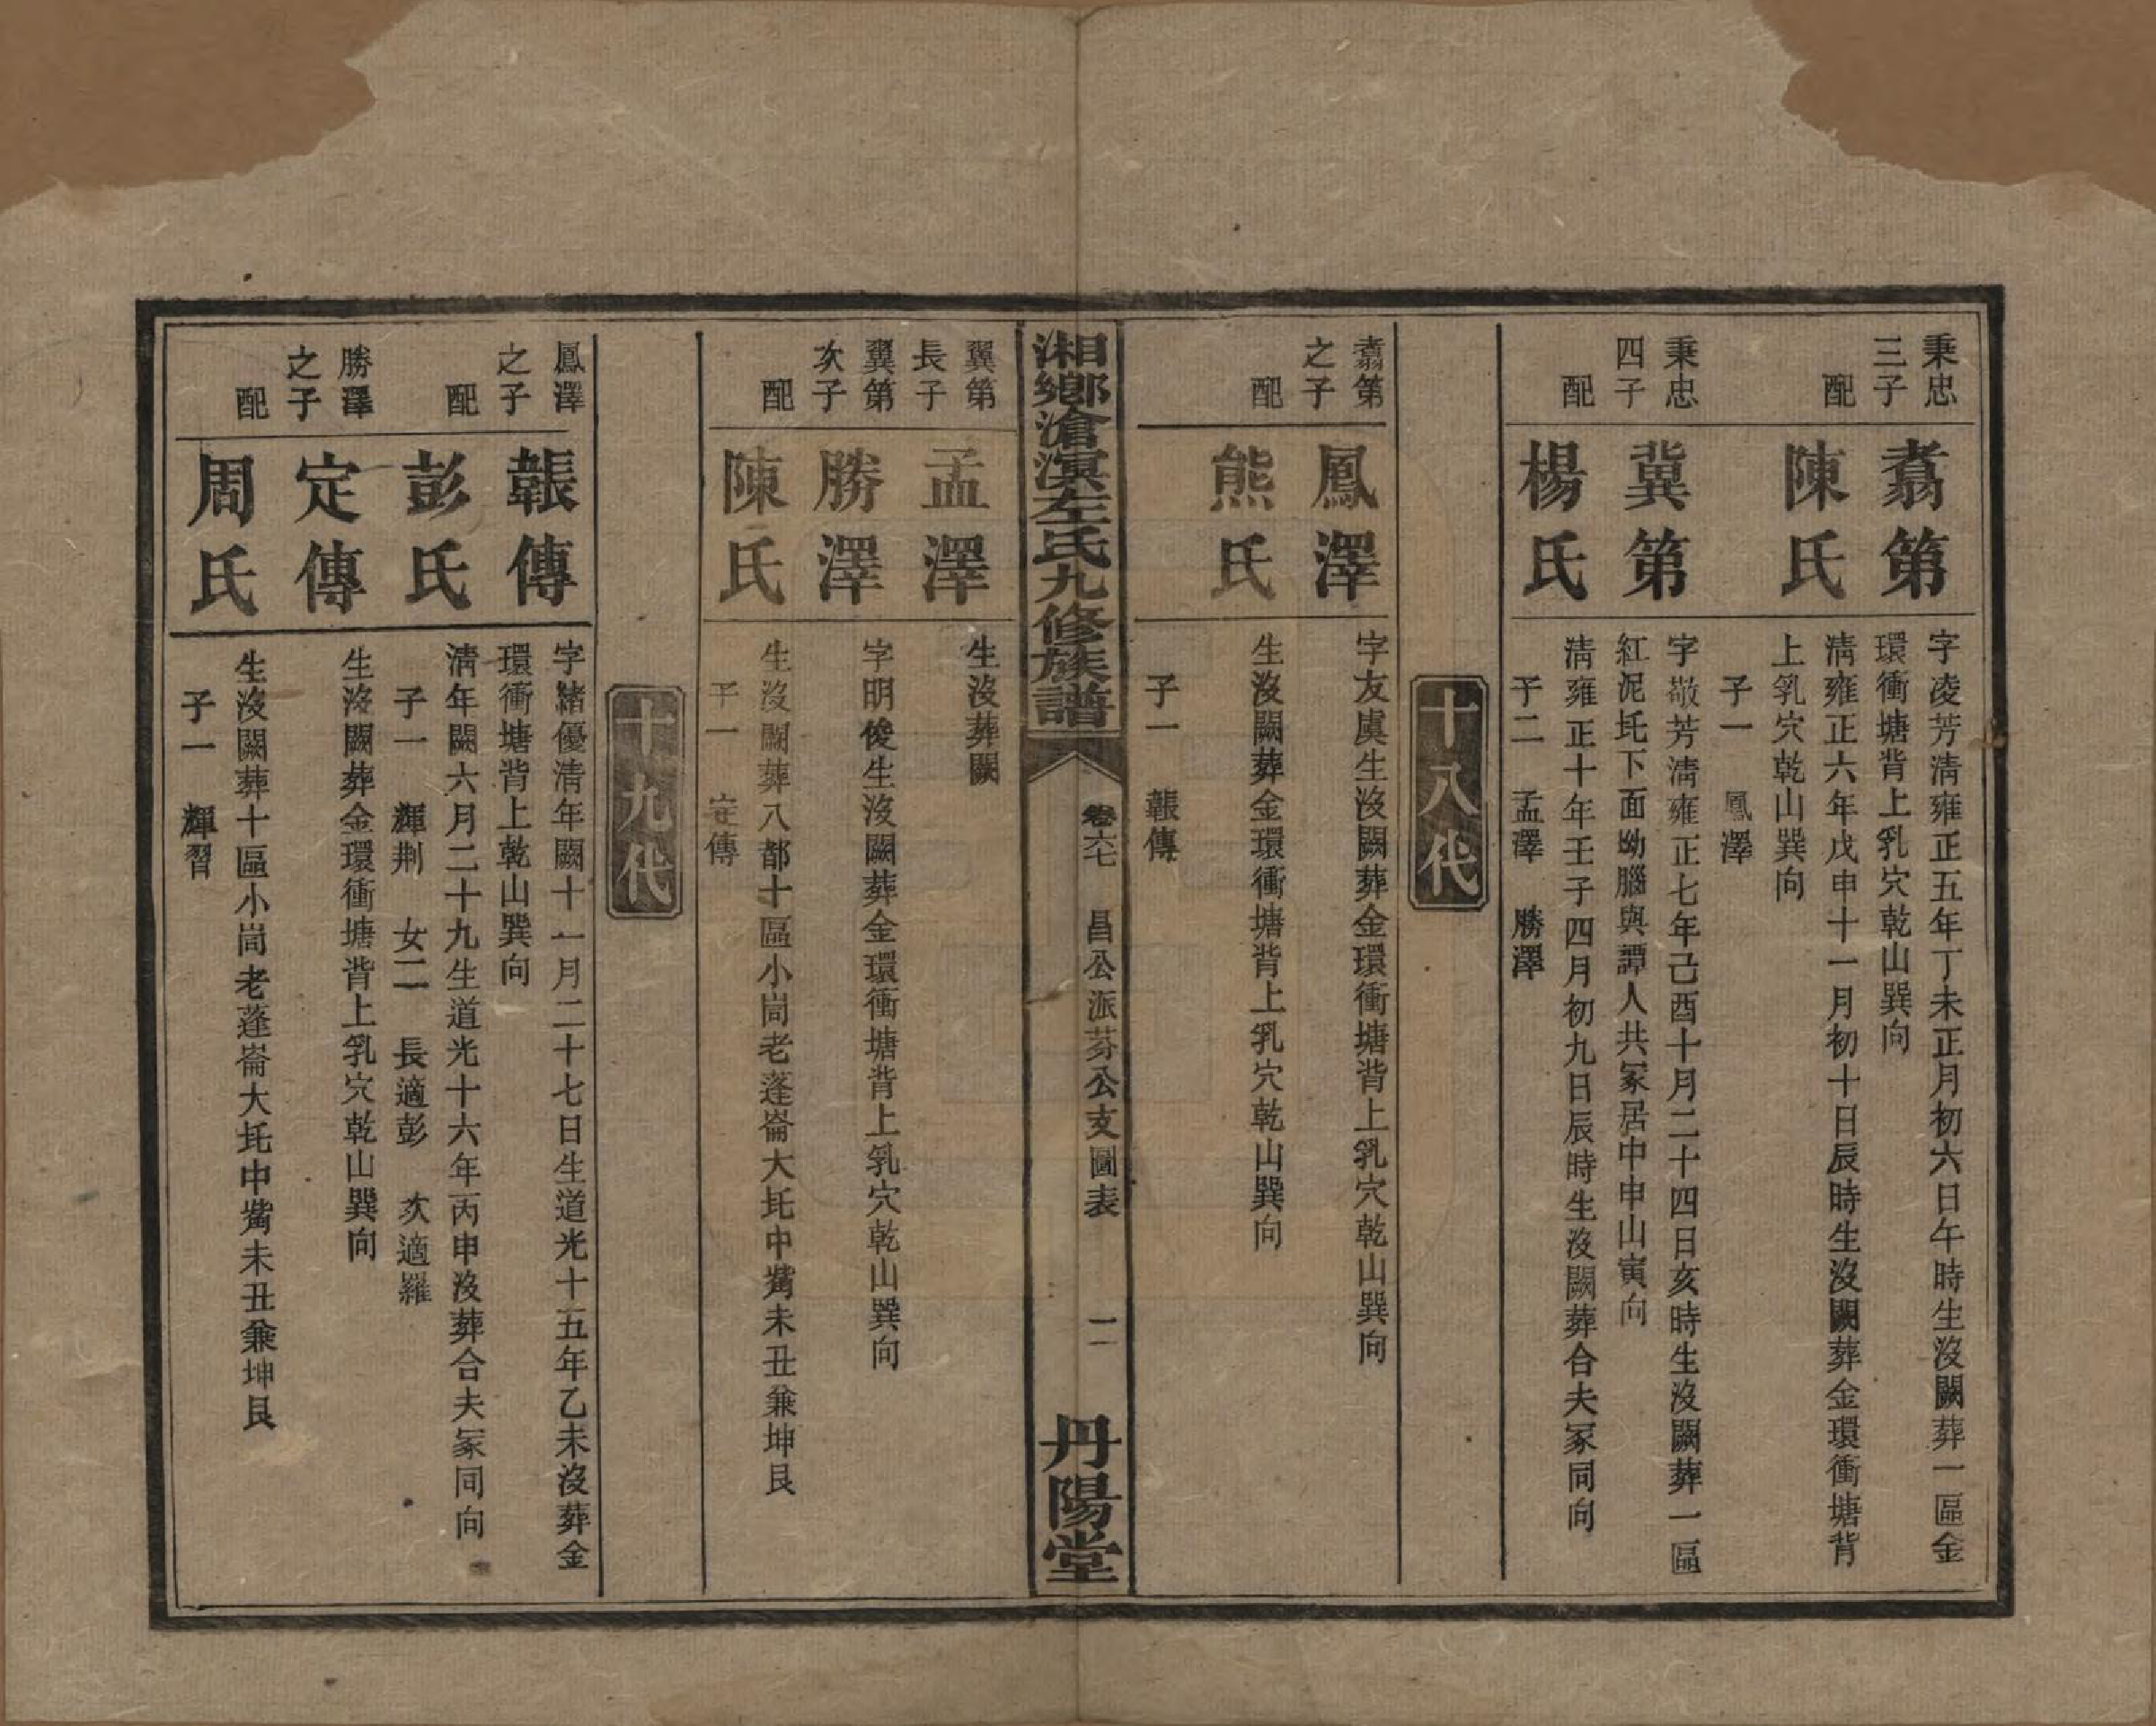 秉忠三子
翥第
字凌芳淸雍正五年丁未正月初六日午時生沒闕葬一區金
環衝塘背上乳穴乾山巽向
配
陳氏
淸雍正六年戊申十一月初十日辰時生沒闕葬金環衝塘背
上乳穴乾山巽向
子一　鳳澤
秉忠四子
冀第
字敬芳淸雍正七年己酉十月二十四日亥時生沒闕葬一區
紅泥圫下面坳腦與譚人共冢居中申山寅向
配
楊氏
淸雍正十年壬子四月初九日辰時生沒闕葬合夫冢同向
子二　孟澤　勝澤
十八代
翥第之子
鳳澤
字友虞生沒闕葬金環衝塘背上乳穴乾山巽向
配
熊氏
生沒闕葬金環衝塘背上乳穴乾山巽向
子一　韔傳
湘鄉滄溟左氏九修族譜
卷六七　昌公派芬公支圖表　二
丹陽堂
翼第長子
孟澤
生沒葬闕
翼第次子
勝澤
字明俊生沒闕葬金環衝塘背上乳穴乾山巽向
配
陳氏
生沒闕葬八都十區小岡老蓬崙大圫中嘴未丑兼坤艮
子一　定傳
十九代
鳳澤之子
韔傳
字緒優淸年闕十一月二十七日生道光十五年乙未沒葬金
環衝塘背上乾山巽向
配
彭氏
淸年闕六月二十九生道光十六年丙申沒葬合夫冢同向
子一　輝荆　女二　長適彭　次適羅
勝澤之子
定傳
生沒闕葬金環衝塘背上乳穴乾山巽向
配
周氏
生沒闕葬十區小岡老蓬崙大圫中嘴未丑兼坤艮
子一　輝習